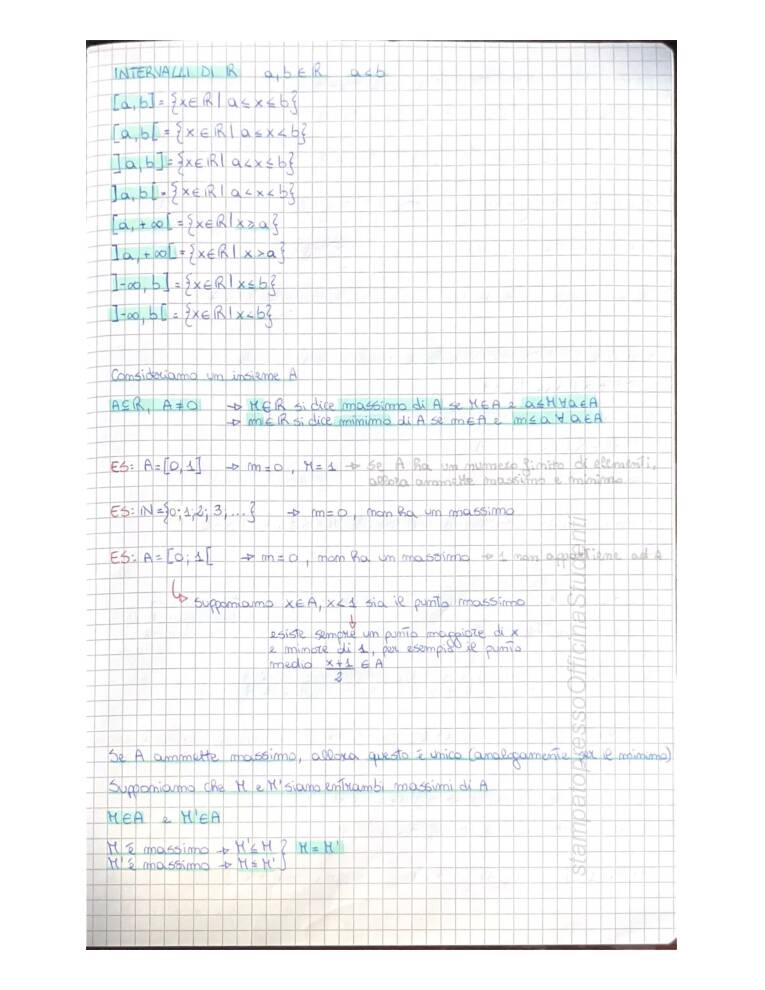 INTERVALLI DI ℝ a,b∈ℝ a<b
[a,b] = {x∈ℝ | a≤x≤b}
[a,b[ = {x∈ℝ | a≤x<b}
]a,b] = {x∈ℝ | a<x≤b}
]a,b[ = {x∈ℝ | a<x<b}
[a,+∞[ = {x∈ℝ | x≥a}
]a,+∞[ = {x∈ℝ | x>a}
]-∞,b] = {x∈ℝ | x≤b}
]-∞,b[ = {x∈ℝ | x<b}
Consideriamo un insieme A
A⊆ℝ, A≠∅ → M∈ℝ si dice massimo di A se M∈A e a≤M ∀a∈A
→ m∈ℝ si dice minimo di A se m∈A e m≤a ∀a∈A
ES: A=[0,1] → m=0, M=1 → Se A ha un numero finito di elementi,
allora ammette massimo e minimo
ES: ℕ={0;1;2;3,...} → m=0, non ha un massimo
ES: A=[0;1[ → m=0, non ha un massimo → 1 non appartiene ad A
supponiamo x∈A, x<1 sia il punto massimo
esiste sempre un punto maggiore di x
e minore di 1, per esempio il punto
medio (x+1)/2 ∈ A
Se A ammette massimo, allora questo è unico (analogamente per il minimo)
Supponiamo che M e M' siano entrambi massimi di A
M∈A e M'∈A
M è massimo → M'≤M } M=M'
M' è massimo → M≤M' }
stampatopressoOfficinaStudenti